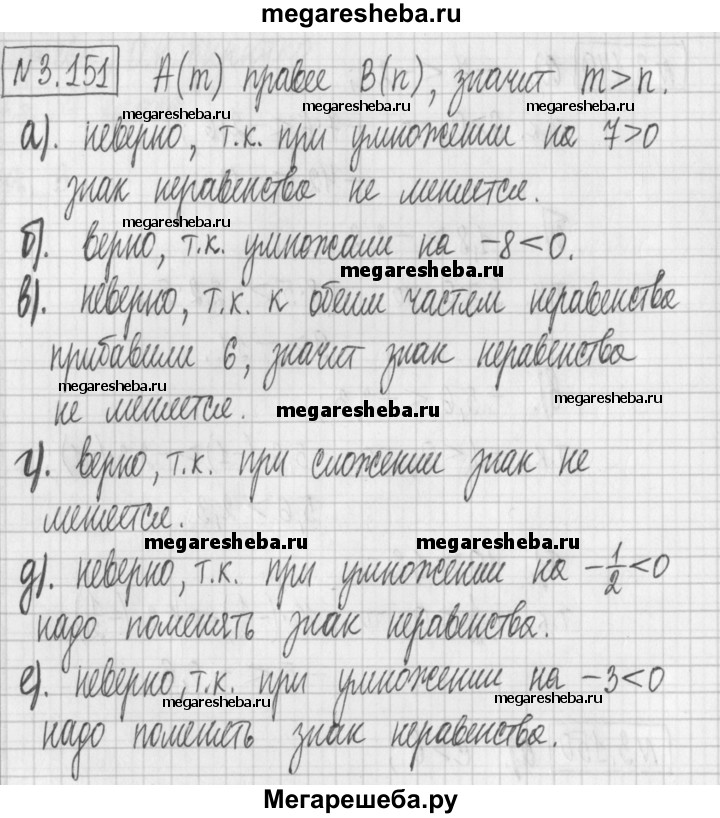 megaresheba.ru
№3.151 А(m) правее В(n), значит m>n.
megaresheba.ru megaresheba.ru
а). неверно, т.к. при умножении на 7>0
знак неравенства не меняется.
megaresheba.ru
б). верно, т.к. умножали на -8<0.
megaresheba.ru
в). неверно, т.к. к обеим частям неравенства
прибавили 6, значит знак неравенства
megaresheba.ru
не меняется. megaresheba.ru
г). верно, т.к. при сложении знак не
меняется.
megaresheba.ru megaresheba.ru
д). неверно, т.к. при умножении на -1/2<0
надо поменять знак неравенства.
е). неверно, т.к. при умножении на -3<0
megaresheba.ru megaresheba.ru
надо поменять знак неравенства.
Мегарешеба.ру